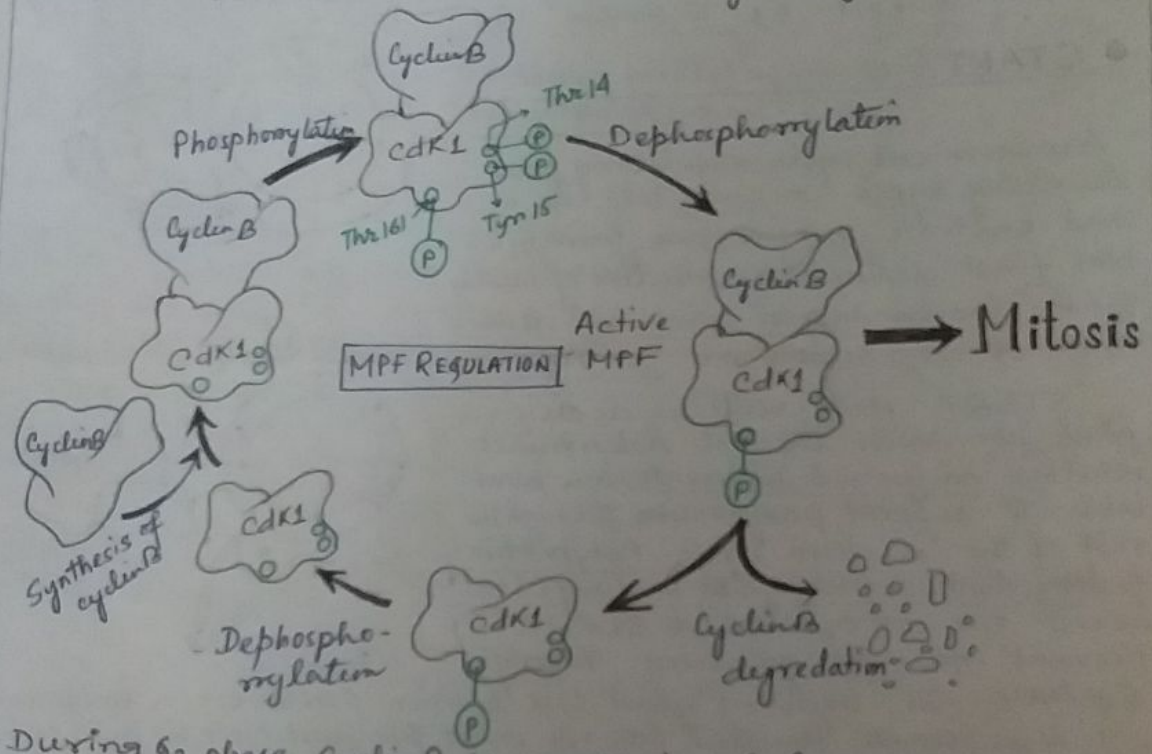 CyclinB
Thr14
Phosphorylation
CdK1
P
P
Dephosphorylation
Thr161
Tyr15
P
CyclinB
CdK1
MPF REGULATION
Active
MPF
CyclinB
CdK1
P
Mitosis
CyclinB
Synthesis of
cyclinB
CdK1
Dephospho-
rylation
CdK1
P
CyclinB
degredation
During